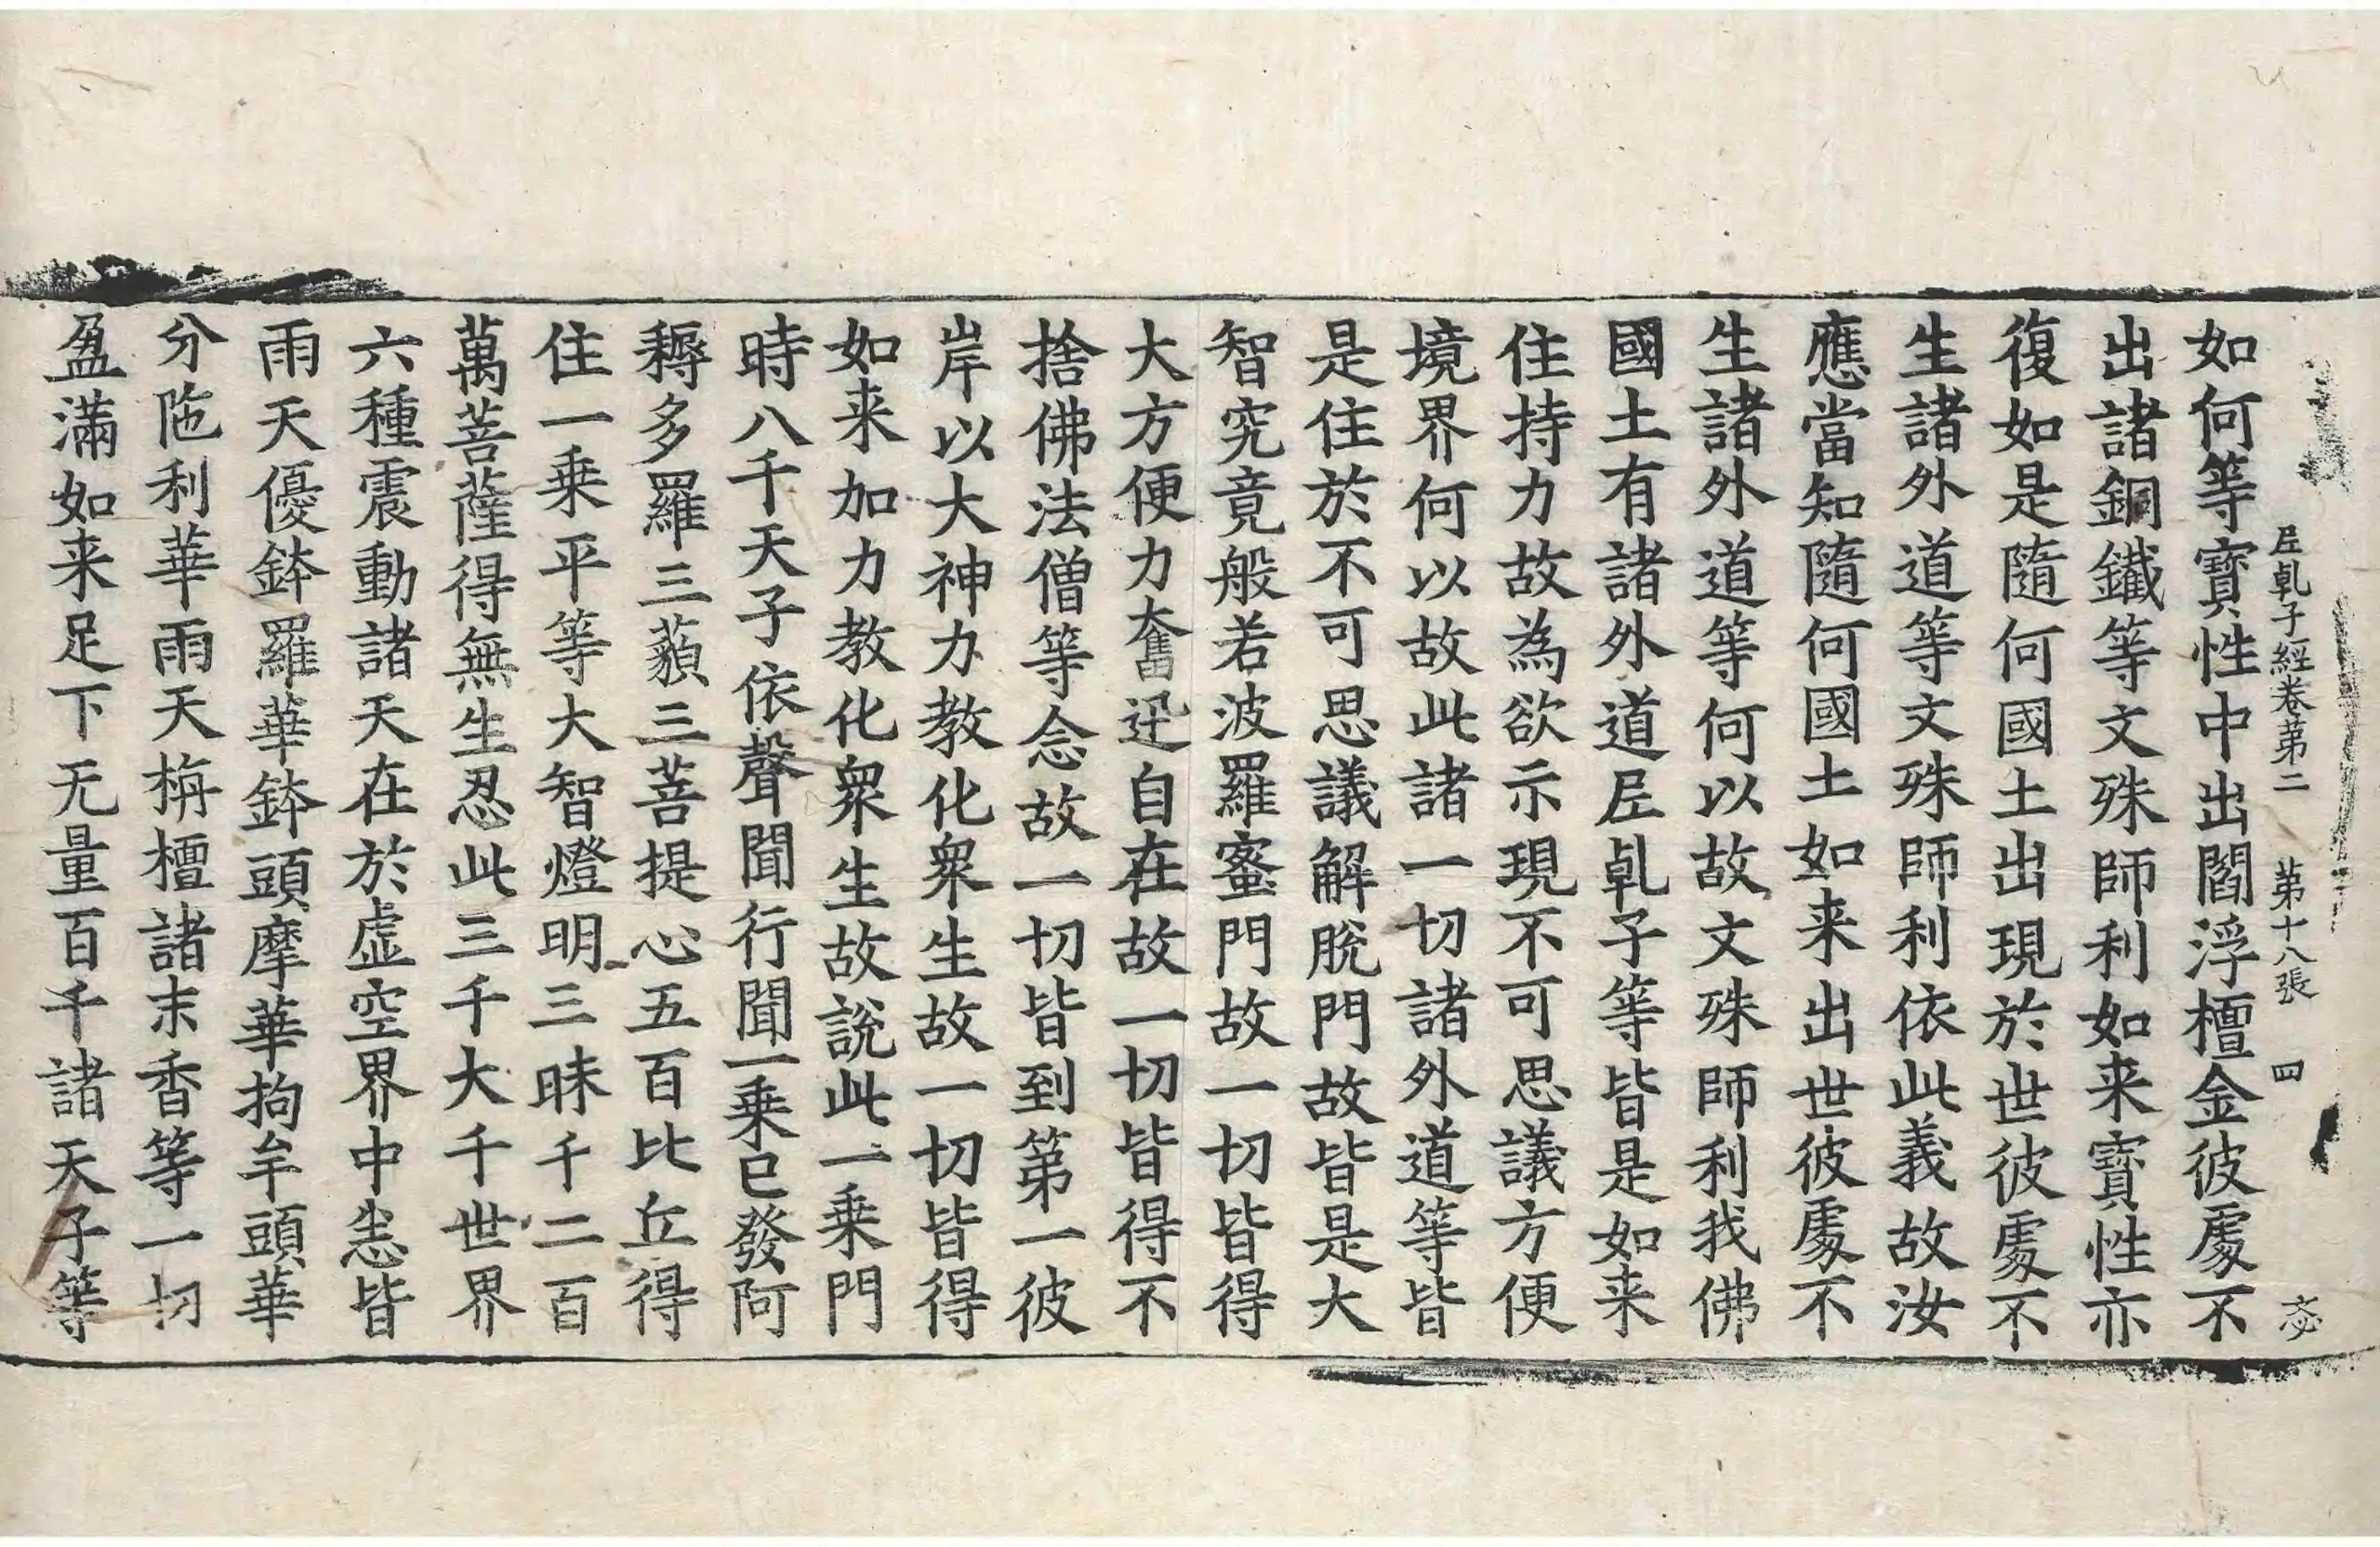 𡰱乹子經卷第二 第十八張 四
如何等寶性中出閻浮檀金彼處不
出諸銅鐵等文殊師利如来寶性亦
復如是隨何國土出現於世彼處不
生諸外道等文殊師利依此義故汝
應當知隨何國土如来出世彼處不
生諸外道等何以故文殊師利我佛
國土有諸外道𡰱乹子等皆是如来
住持力故為欲示現不可思議方便
境界何以故此諸一切諸外道等皆
是住於不可思議解脫門故皆是大
智究竟般若波羅蜜門故一切皆得
大方便力奮迅自在故一切皆得不
捨佛法僧等念故一切皆到第一彼
岸以大神力教化衆生故一切皆得
如来加力教化衆生故說此一乗門
時八千天子依聲聞行聞一乗已發阿
耨多羅三藐三菩提心五百比丘得
住一乗平等大智燈明三昧千二百
萬菩薩得無生忍此三千大千世界
六種震動諸天在於虛空界中悉皆
雨天優鉢羅華鉢頭摩華拘牟頭華
分陁利華雨天栴檀諸末香等一切
盈滿如来足下无量百千諸天子等